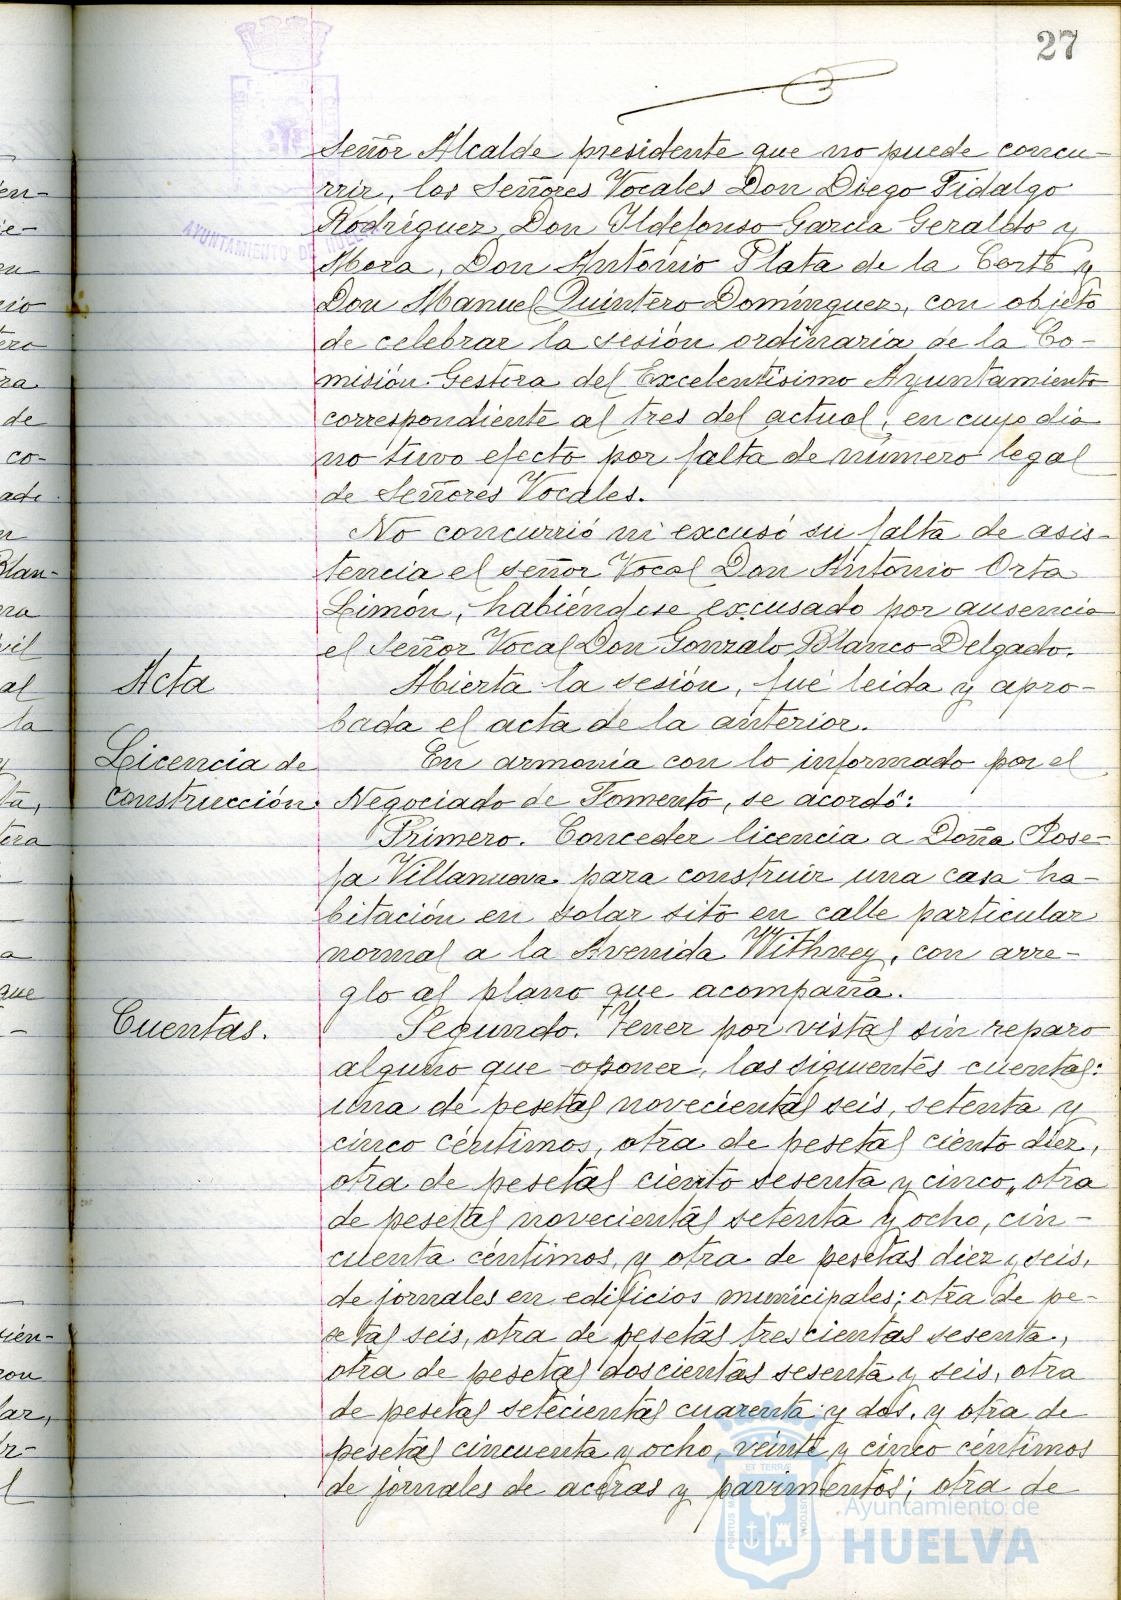 27
Señor Alcalde presidente que no puede concu-
rrir, los Señores Vocales Don Diego Fidalgo
Rodríguez, Don Ildefonso García Geraldo y
Mora, Don Antonio Plata de la Corte y
Don Manuel Quintero Domínguez, con objeto
de celebrar la sesión ordinaria de la Co-
misión Gestora del Excelentísimo Ayuntamiento
correspondiente al tres del actual, en cuyo dia
no tuvo efecto por falta de número legal
de Señores Vocales.
No concurrió ni excusó su falta de asis-
tencia el señor Vocal Don Antonio Orta
Limón, habiéndose excusado por ausencia
el Señor Vocal Don Gonzalo Blanco Delgado.
Acta
Abierta la sesión, fué leida y apro-
bada el acta de la anterior.
Licencia de
construcción.
En armonía con lo informado por el
Negociado de Fomento, se acordó:
Primero. Conceder licencia a Doña Jose-
fa Villanueva para construir una casa ha-
bitación en solar sito en calle particular
normal a la Avenida Withney, con arre-
glo al plano que acompaña.
Cuentas.
Segundo. Tener por vistas sin reparo
alguno que oponer, las siguientes cuentas:
una de pesetas novecientas seis, setenta y
cinco céntimos, otra de pesetas ciento diez,
otra de pesetas ciento sesenta y cinco, otra
de pesetas novecientas setenta y ocho, cin-
cuenta céntimos, y otra de pesetas diez y seis,
de jornales en edificios municipales; otra de pe-
setas seis, otra de pesetas trescientas sesenta,
otra de pesetas doscientas sesenta y seis, otra
de pesetas setecientas cuarenta y dos, y otra de
pesetas cincuenta y ocho, veinte y cinco céntimos
de jornales de aceras y pavimentos; otra de
AYUNTAMIENTO DE HUELVA
Ayuntamiento de
HUELVA